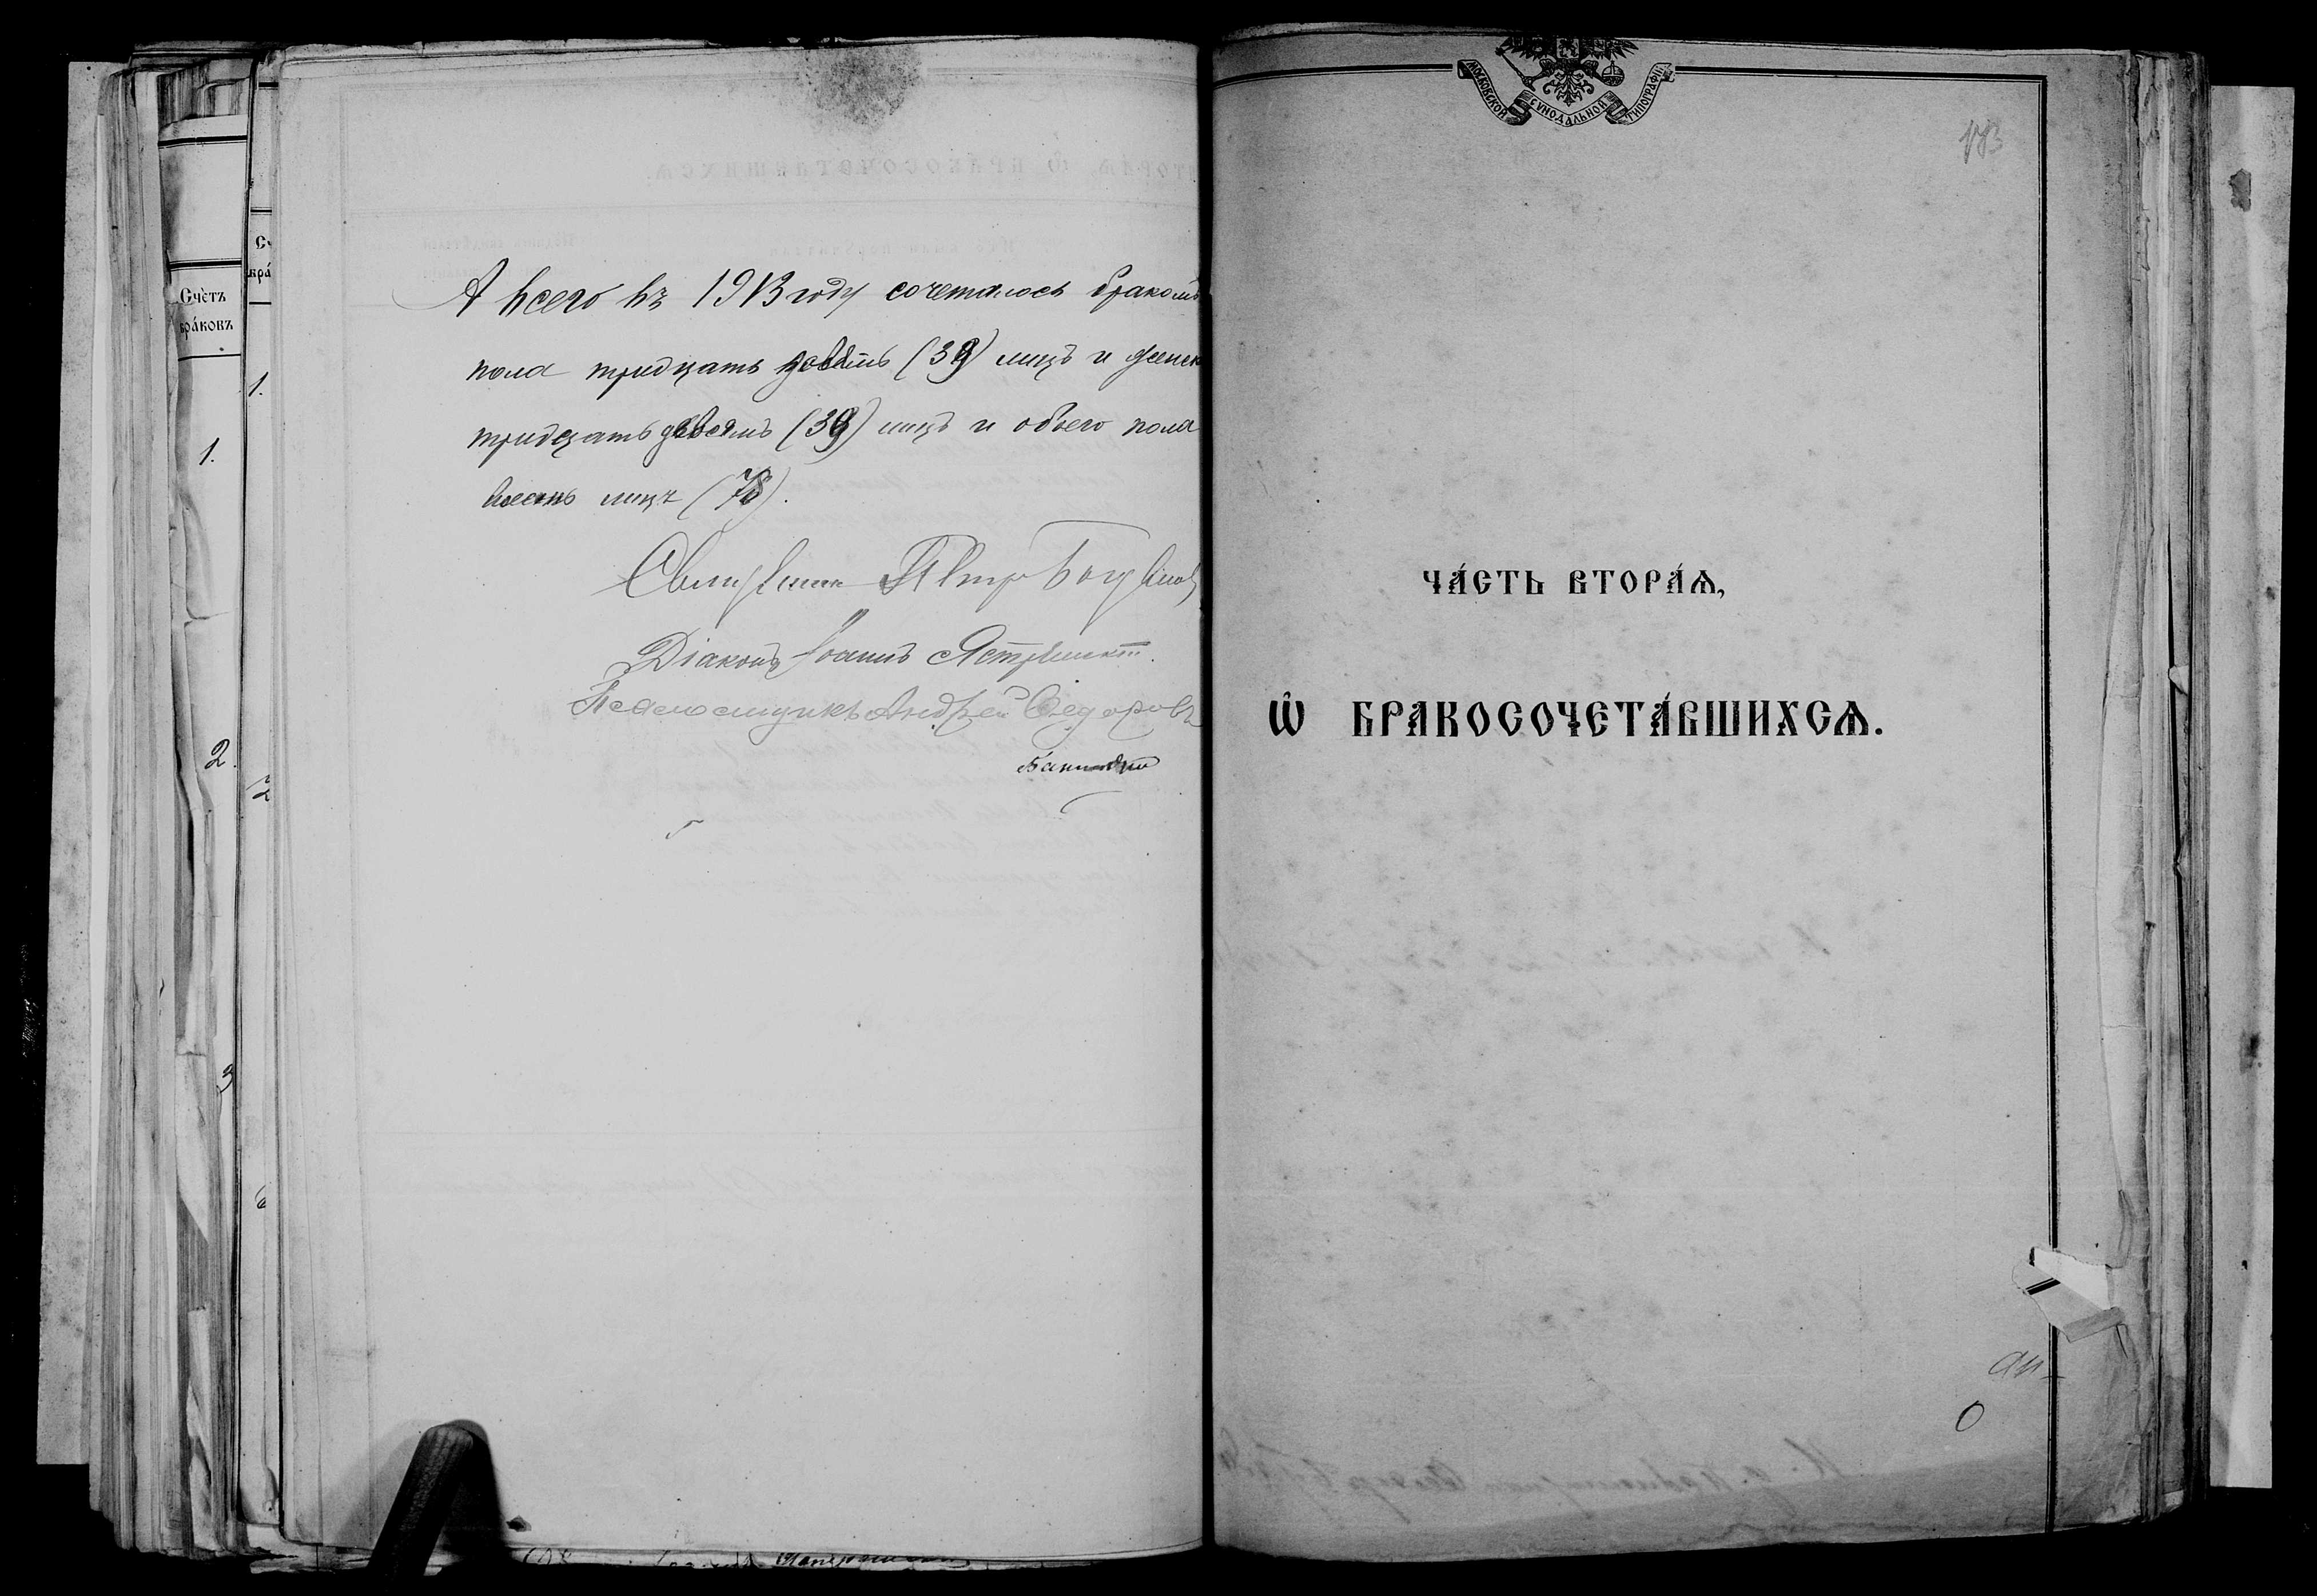 Счѐтъ
бра́ковъ
1.
2.
3
1.
2
А всего въ 1913 году сочеталось бракомъ
пола тридцать девять (39) лицъ и женск
тридцать девять (39) лицъ и обоего пола
лицъ (78).
Священникъ Петръ
Діаконъ Іоаннъ
Псаломщикъ Андрей Ѳедоровъ
МОСКОВСКОЙ СѴНОДАЛЬНОЙ ТИПОГРАФІИ
173
ЧА́СТЬ ВТОРА́Ѧ,
Ѽ БРАКОСОЧЕТА́ВШИХСѦ.